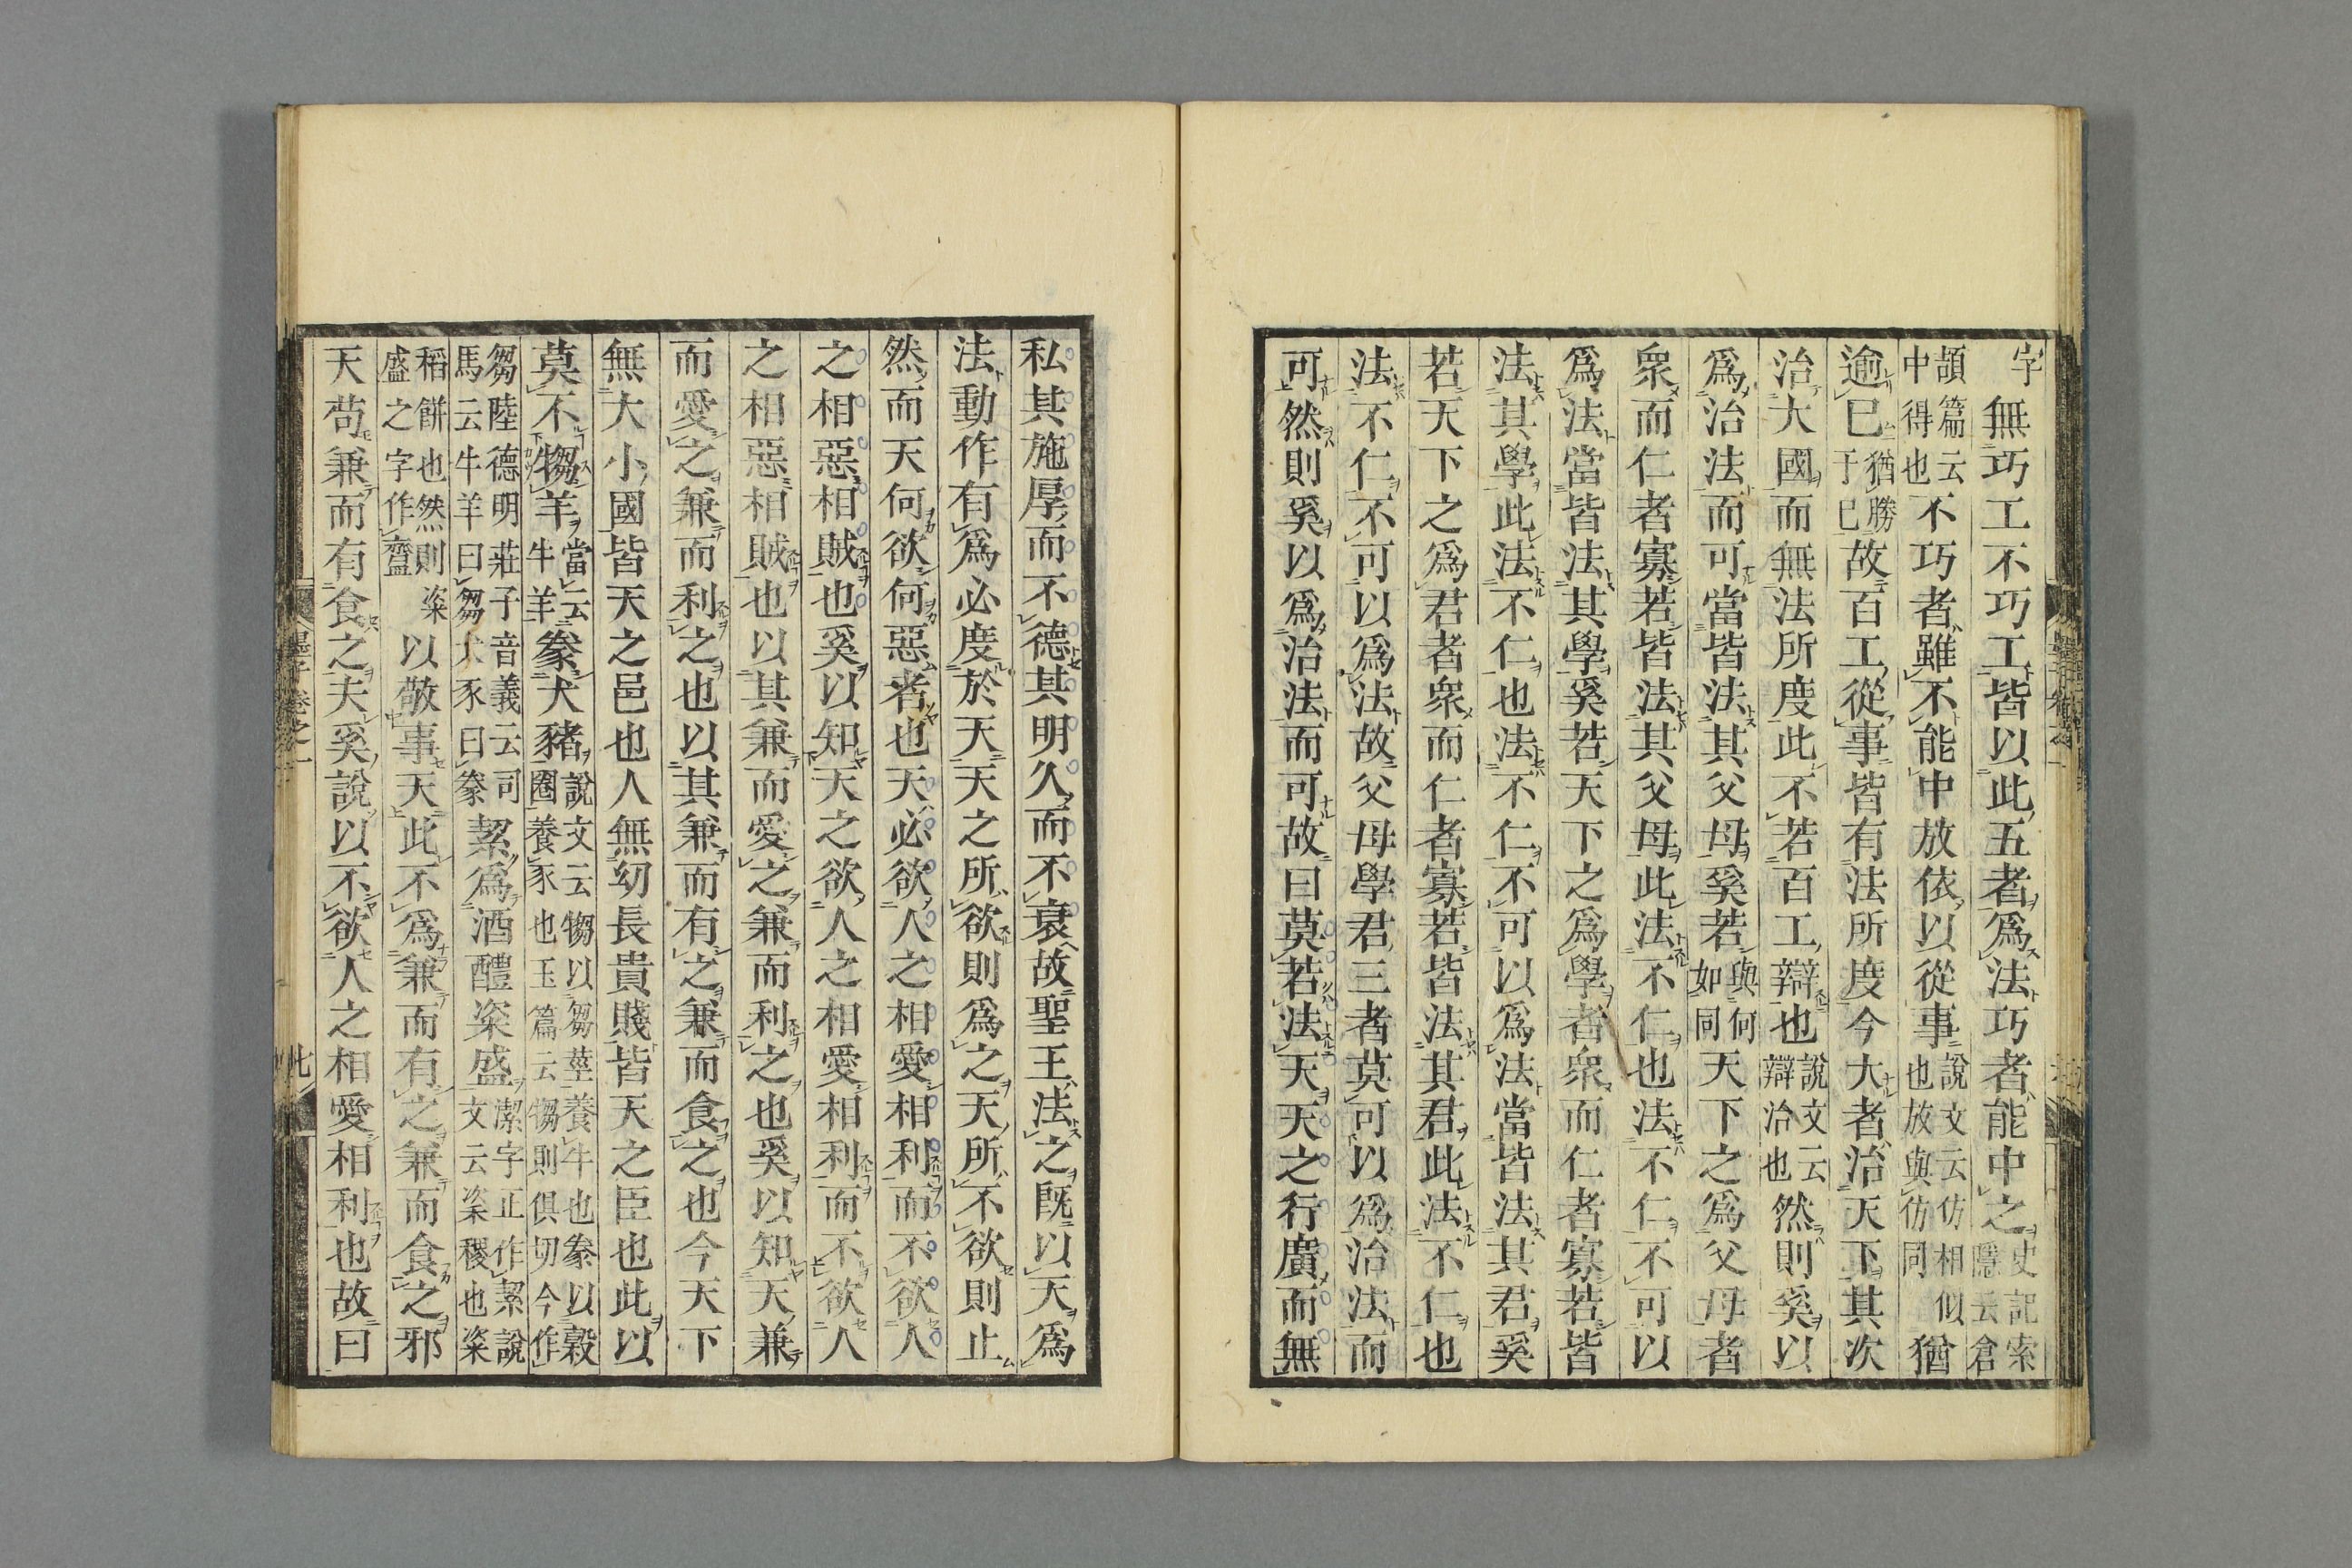 字無巧工不巧工皆以此五者爲法巧者能中之史記索隱云倉
頡篇云中得也不巧者雖不能中放依以從事說文云仿相似也放與仿同猶
逾已猶勝于已故百工從事皆有法所度今大者治天下其次
治大國而無法所度此不若百工辯也說文云辯治也然則奚以
爲治法而可當皆法其父母奚若與何如同天下之爲父母者
衆而仁者寡若皆法其父母此法不仁也法不仁不可以
爲法當皆法其學奚若天下之爲學者衆而仁者寡若皆
法其學此法不仁也法不仁不可以爲法當皆法其君奚
若天下之爲君者衆而仁者寡若皆法其君此法不仁也
法不仁不可以爲法故父母學君三者莫可以爲治法而
可然則奚以爲治法而可故曰莫若法天天之行廣而無
私其施厚而不德其明久而不衰故聖王法之既以天爲
法動作有爲必度於天天之所欲則爲之天所不欲則止
然而天何欲何惡者也天必欲人之相愛相利而不欲人
之相惡相賊也奚以知天之欲人之相愛相利而不欲人
之相惡相賊也以其兼而愛之兼而利之也奚以知天兼
而愛之兼而利之也以其兼而有之兼而食之也今天下
無大小國皆天之邑也人無幼長貴賤皆天之臣也此以
莫不犓羊當云牛羊豢犬豬說文云犓以芻莖養牛也豢以穀圈養豕也玉篇云犓則俱切今作
芻陸德明莊子音義云司馬云牛羊曰芻犬豕曰豢絜爲酒醴粢盛潔字正作絜說文云粢稷也粢
稻餅也然則粢盛之字作齍以敬事天此不爲兼而有之兼而食之邪
天苟兼而有食之夫奚說以不欲人之相愛相利也故曰
墨子卷之一